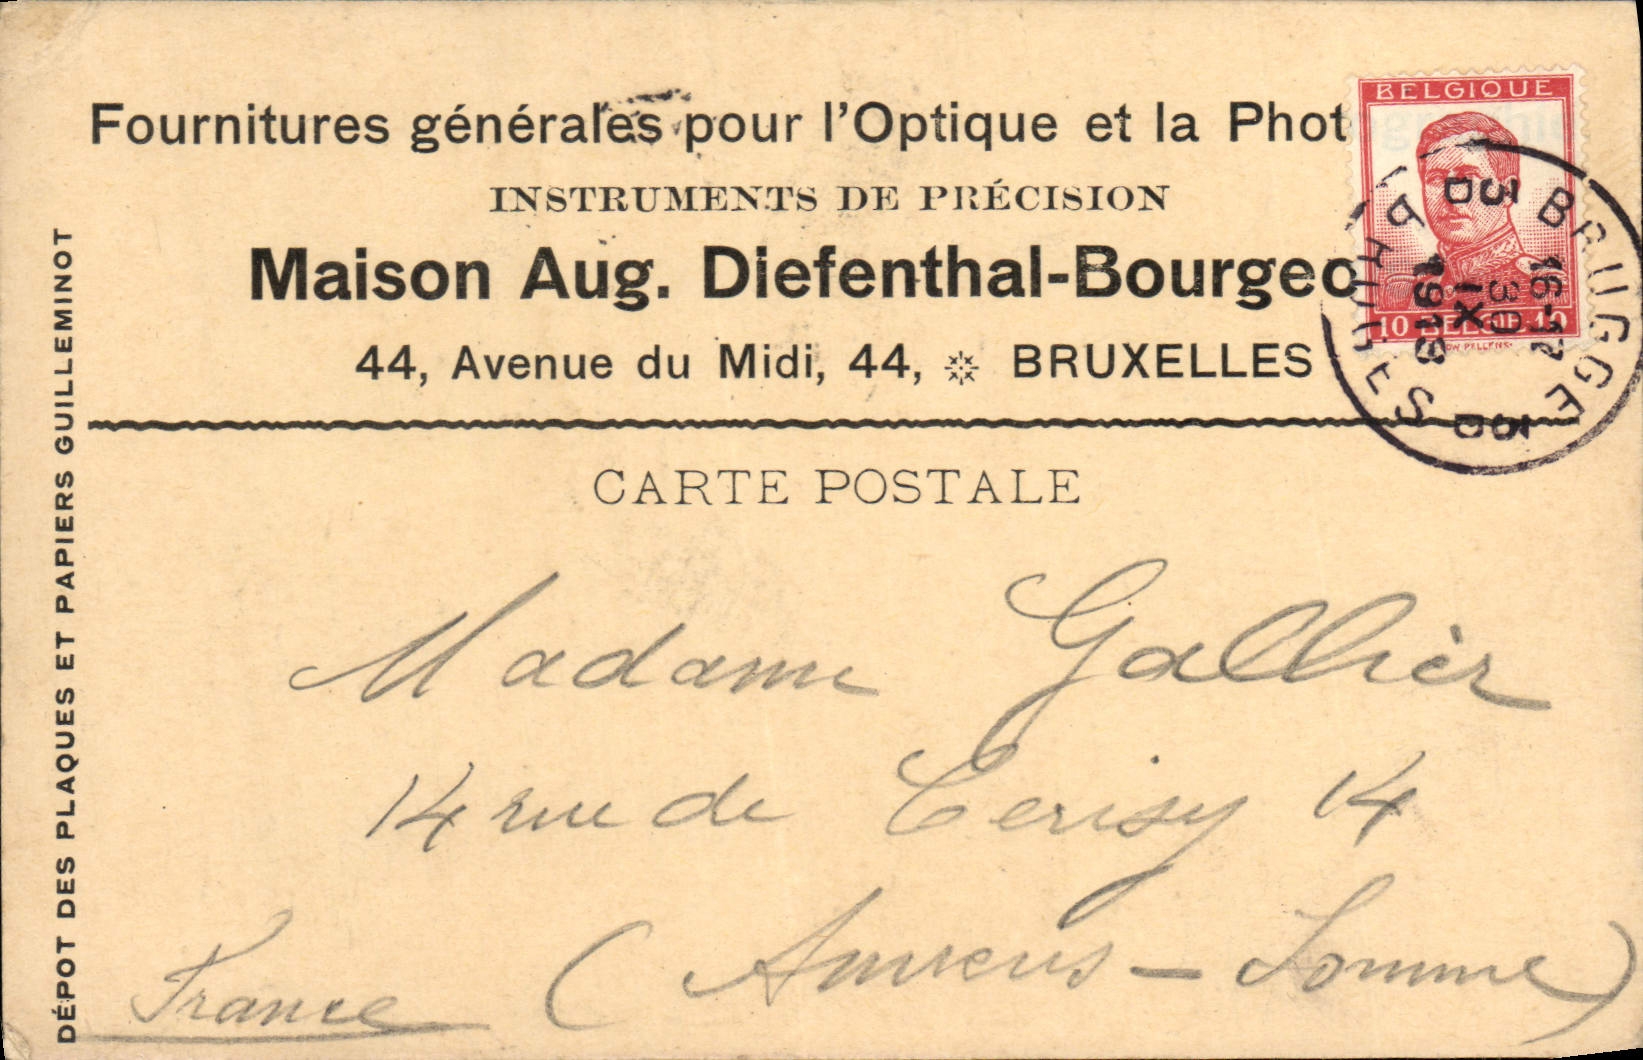 Fournitures générales pour l'Optique et la Phot
INSTRUMENTS DE PRÉCISION
Maison Aug. Diefenthal-Bourgeo
44, Avenue du Midi, 44, BRUXELLES
BELGIQUE
10 BELGIË 10
BRUGGE
3D
16-17
30
IX
1913
BRUGES
3D
CARTE POSTALE
DÉPOT DES PLAQUES ET PAPIERS GUILLEMINOT
Madame Gallier
14 rue de Cerisy 14
(Amiens - Somme)
France